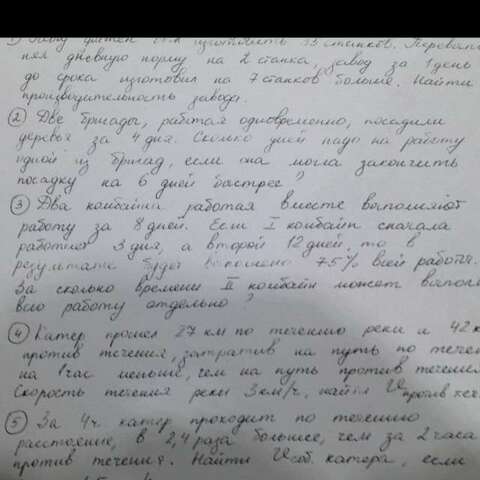 изготовить 33 станков. Перевыпол
няя дневную норму на 2 станка, завод за 1 день
до срока изготовил на 7 станков больше. Найти
производительность завода.
② Две бригады, работая одновременно, посадили
деревья за 4 дня. Сколько дней надо на работу
одной из бригад, если она могла закончить
посадку на 6 дней быстрее?
③ Два комбайна работая вместе выполняют
работу за 8 дней. Если I комбайн сначала
работает 3 дня, а второй 12 дней, то в
результате будет выполнено 75% всей работы.
За сколько времени II комбайн может выполн
всю работу отдельно?
④ Катер прошёл 27 км по течению реки и 42 к
против течения, затратив на путь по течен
на 1 час меньше, чем на путь против течения
Скорость течения реки 3 км/ч, найти V против теч.
⑤ За 4 ч. катер проходит по течению
расстояние, в 2,4 раза большее, чем за 2 часа
против течения. Найти V соб. катера, если